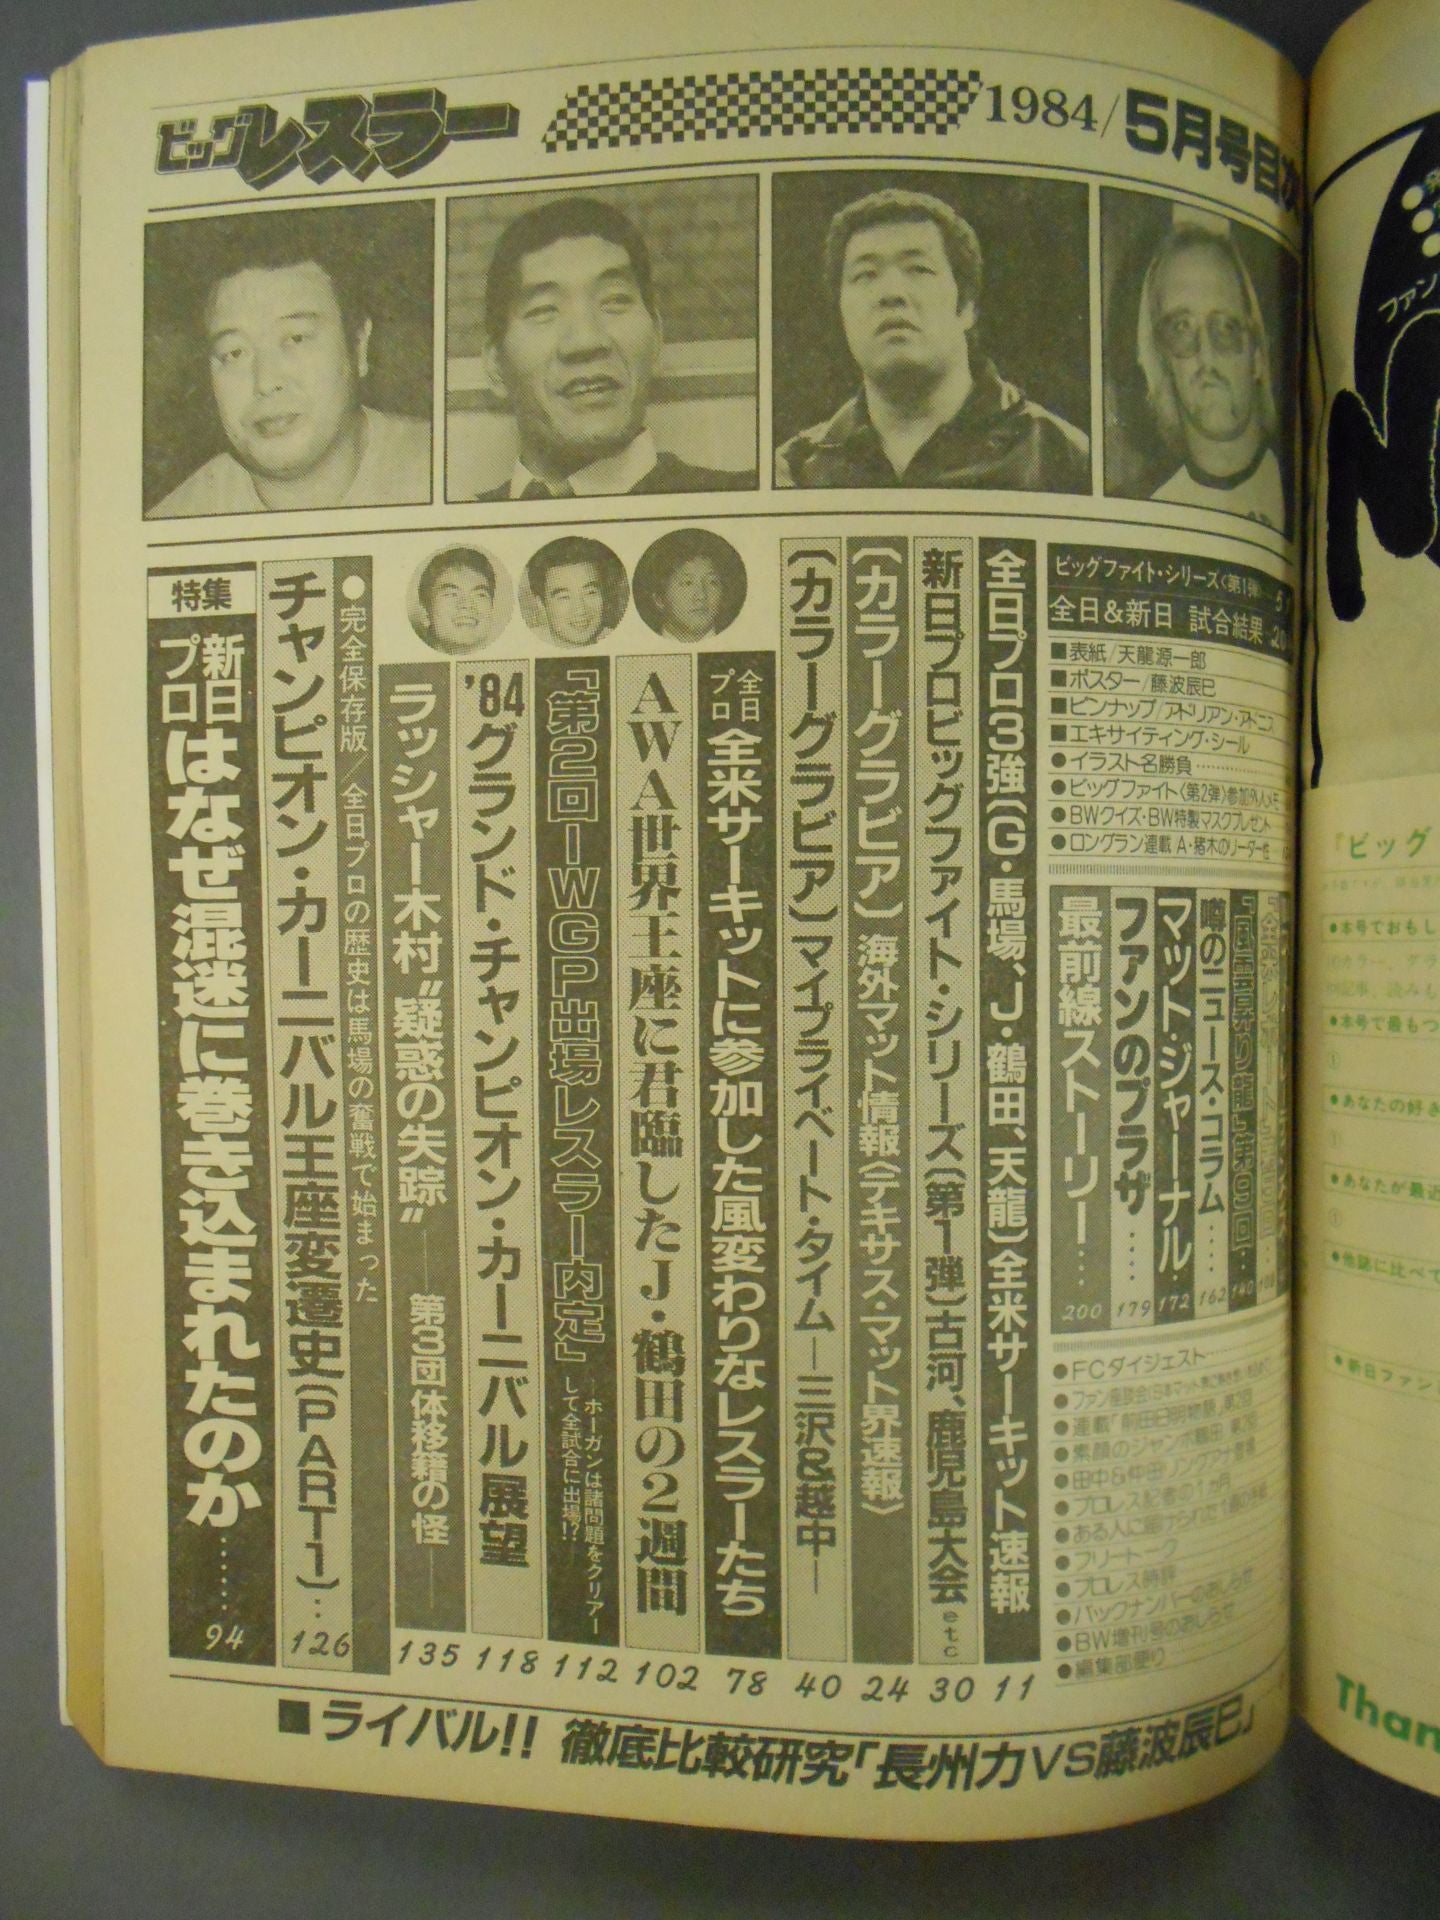 ビッグレスラー
1984/5月号目
ビッグファイト・シリーズ〈第1弾〉
全日&新日 試合結果
■表紙/天龍源一郎
■ポスター/藤波辰巳
■ピンナップ/アドリアン・アドニス
■エキサイティング・シール
●イラスト名勝負
●ビッグファイト〈第2弾〉参加外人メモ
●BWクイズ・BW特製マスクプレゼント
●ロングラン連載 A・猪木のリーダー性
『風雲昇り龍』第9回… 140
噂のニュース・コラム…… 162
マット・ジャーナル… 172
ファンのプラザ…… 179
最前線ストーリー… 200
●FCダイジェスト
●連載「前田日明物語」第2回
●素顔のジャンボ鶴田 第7回
●田中&仲田リングアナ登場
●プロレス記者の1ヵ月
●フリートーク
●プロレス時評
●バックナンバーのおしらせ
●BW増刊号のおしらせ
●編集部便り
全日プロ3強(G・馬場、J・鶴田、天龍)全米サーキット速報 11
新日プロビッグファイト・シリーズ(第1弾)古河、鹿児島大会etc 30
(カラーグラビア)海外マット情報〈テキサス・マット界速報〉 24
(カラーグラビア)マイプライベート・タイム―三沢&越中― 40
全日プロ 全米サーキットに参加した風変わりなレスラーたち 78
AWA世界王座に君臨したJ・鶴田の2週間 102
「第2回IWGP出場レスラー内定」―ホーガンは諸問題をクリアーして全試合に出場!?― 112
'84グランド・チャンピオン・カーニバル展望 118
ラッシャー木村“疑惑の失踪”――第3団体移籍の怪―― 135
●完全保存版/全日プロの歴史は馬場の奮戦で始まった
チャンピオン・カーニバル王座変遷史(PART1)… 126
特集
新日プロはなぜ混迷に巻き込まれたのか…… 94
■ライバル!! 徹底比較研究「長州力VS藤波辰巳」
ファン
『ビッグ
●本号でおもし
●本号で最もつ
①
●あなたの好き
①
●あなたが最近
①
●他誌に比べて
●新日ファン
Than